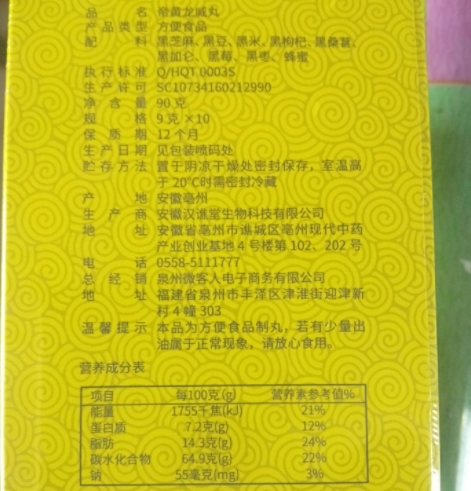 品名 帝黄龙威丸
产品类型 方便食品
配料 黑芝麻、黑豆、黑米、黑枸杞、黑桑葚、
黑加仑、黑莓、黑枣、蜂蜜
执行标准 Q/HQT 0003S
生产许可 SC10734160212990
净含量 90克
规格 9克×10
保质期 12个月
生产日期 见包装喷码处
贮存方法 置于阴凉干燥处密封保存，室温高
于20℃时需密封冷藏
产地 安徽亳州
生产商 安徽汉谯堂生物科技有限公司
地址 安徽省亳州市谯城区亳州现代中药
产业创业基地4号楼第102、202号
电话 0558-5111777
总经销 泉州微客人电子商务有限公司
地址 福建省泉州市丰泽区津淮街迎津新
村4幢303
温馨提示 本品为方便食品制丸，若有少量出
油属于正常现象，请放心食用。
营养成分表
项目 每100克(g) 营养素参考值%
能量 1755千焦(kJ) 21%
蛋白质 7.2克(g) 12%
脂肪 14.3克(g) 24%
碳水化合物 64.9克(g) 22%
钠 55毫克(mg) 3%